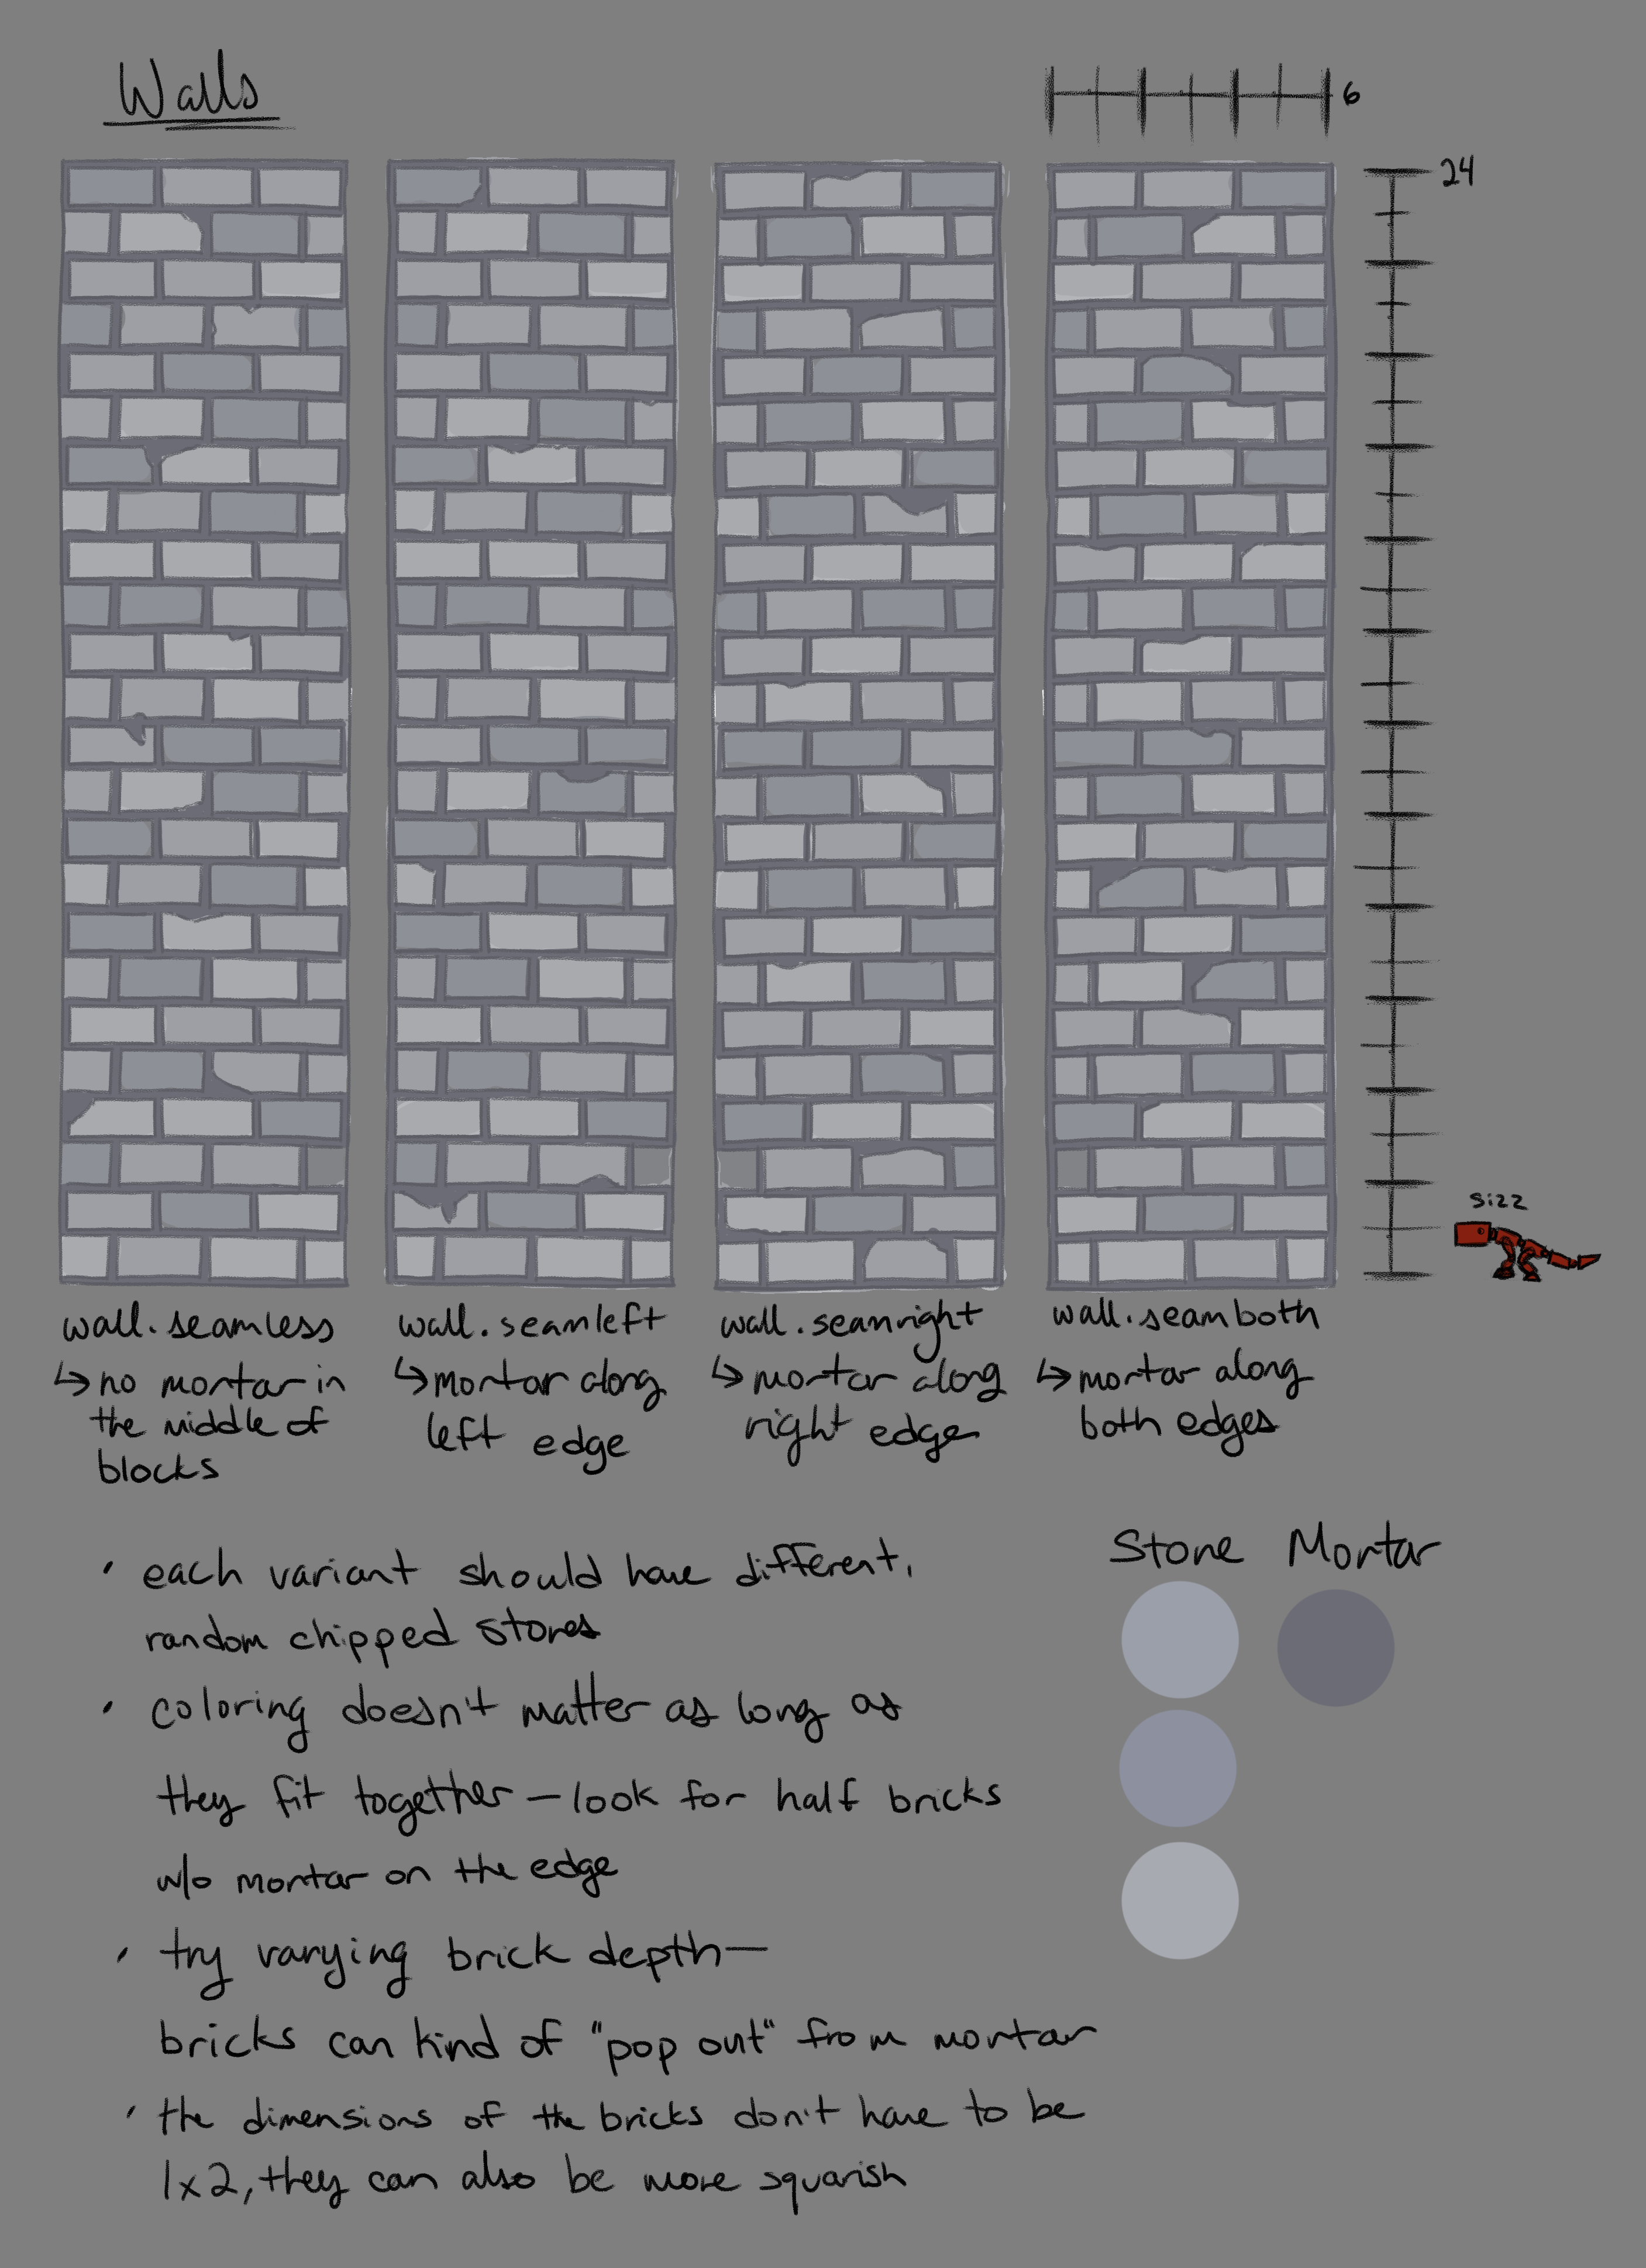 Walls
6
24
sizz
wall.seamless
↳ no mortar in
the middle of
blocks
wall.seamleft
↳ mortar along
left edge
wall.seamright
↳ mortar along
right edge
wall.seamboth
↳ mortar along
both edges
• each variant should have different,
random chipped stones
• coloring doesn't matter as long as
they fit together — look for half bricks
w/o mortar on the edge
• try varying brick depth —
bricks can kind of "pop out" from mortar
• the dimensions of the bricks don't have to be
1x2, they can also be more squarish
Stone
Mortar